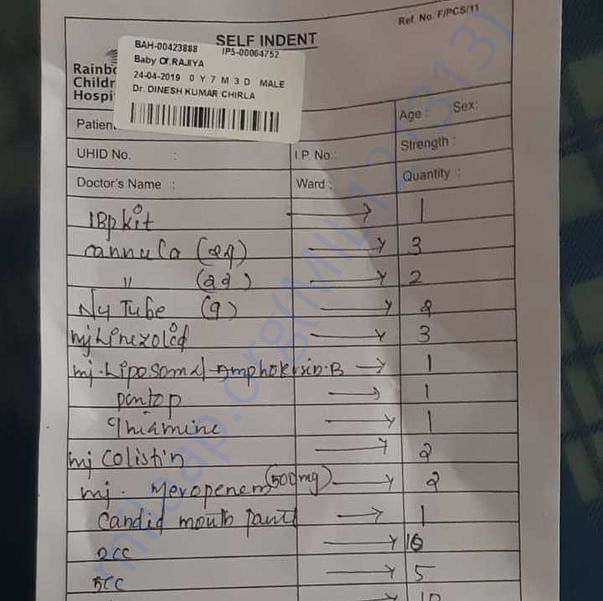 Ref. No. F/PCS/11
SELF INDENT
BAH-00423888 IPS-00064752
Baby Of.RAJIYA
24-04-2019 0 Y 7 M 3 D MALE
Dr. DINESH KUMAR CHIRLA
Rainbo
Childr
Hospi
Patien Age : Sex:
UHID No. : I.P. No.: Strength :
Doctor's Name : Ward : Quantity :
IBP kit → 1
cannula (24) → 3
" (22) → 2
NG Tube (9) → 2
inj Linezolid → 3
inj. Liposomal Amphotersin-B → 1
pantop → 1
Thiamine → 1
inj Colistin → 2
inj. Meropenem (500mg) → 2
Candid mouth paint → 1
2cc → 10
5cc → 5
10
milaap.org